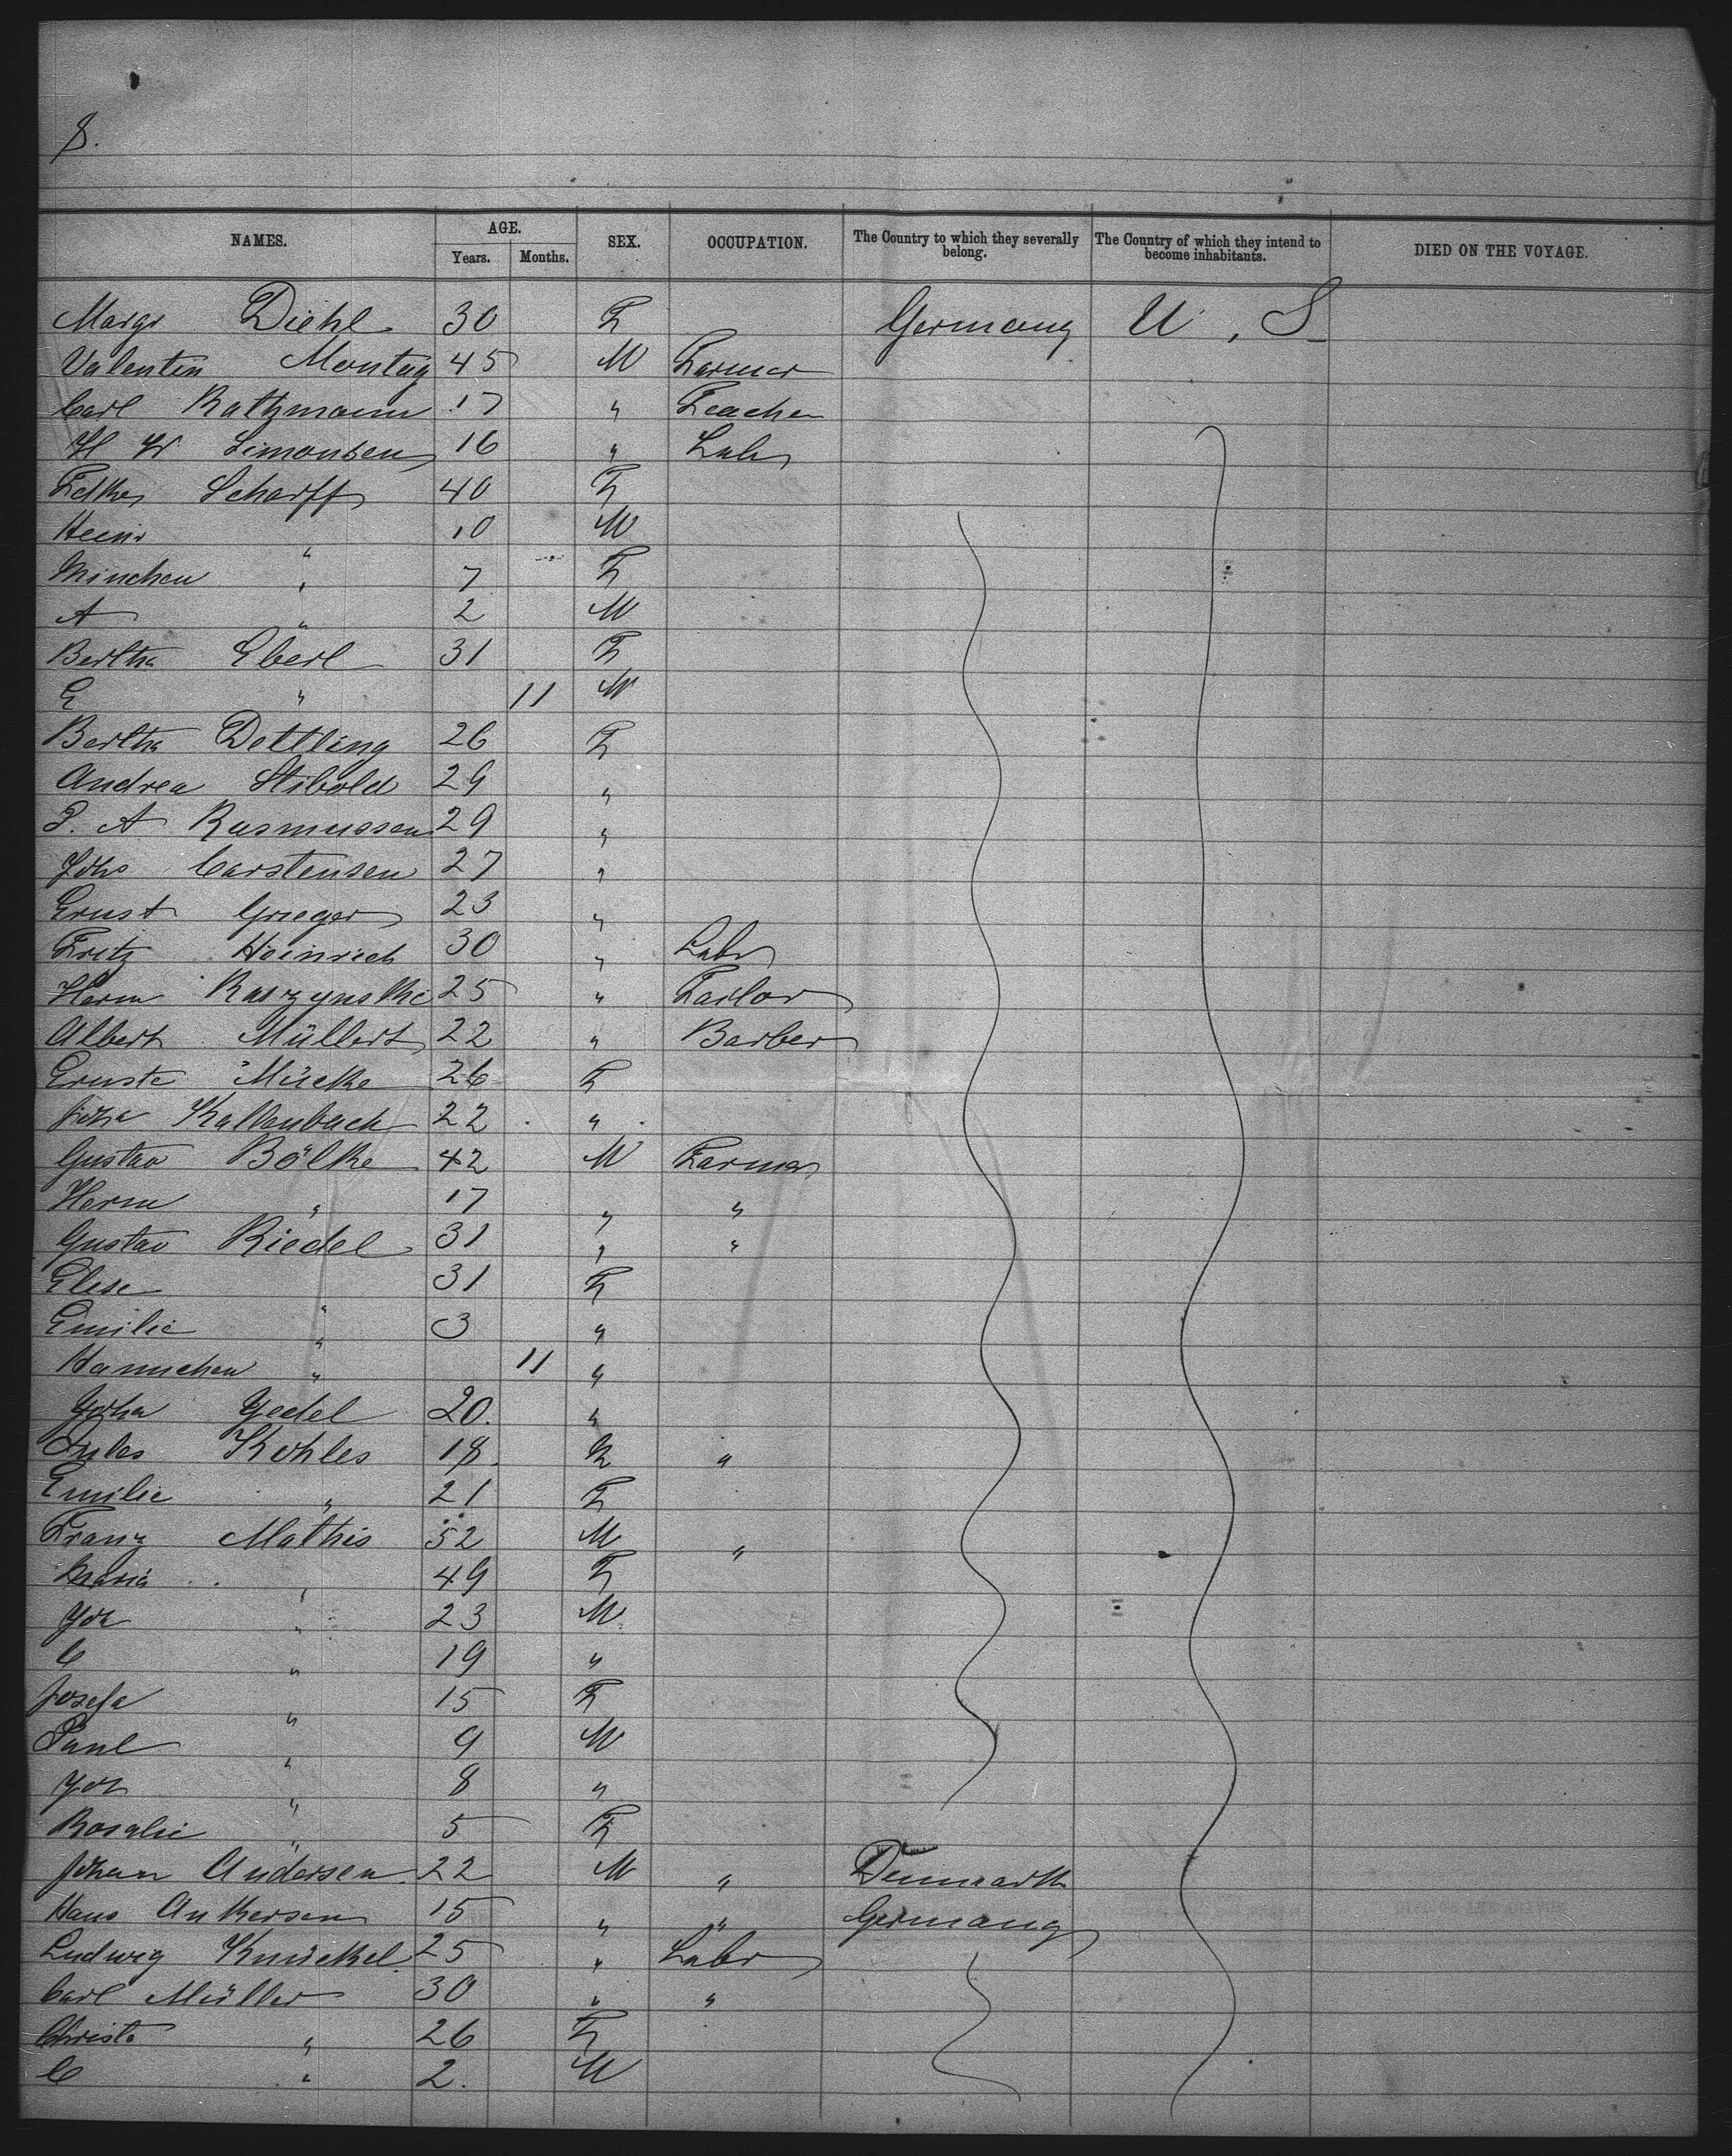 8.
NAMES. AGE. Years. Months. SEX. OCCUPATION. The Country to which they severally belong. The Country of which they intend to become inhabitants. DIED ON THE VOYAGE.
Margr Diehl 30 F Germany U. S
Valentin Montag 45 M Farmer
Carl Rathmann 17 " Teacher
H W Simonsen 16 " Labr
Scharff 40 F
Heinr " 10 M
Minchen " 7 F
A " 2 M
Bertha Eberl 31 F
E " 11 M
Bertha Dettling 26 F
Andrea Stibold 29 "
P. A Rasmussen 29 "
Johs Carstensen 27 "
Ernst Grieger 23 "
Fritz Heinrich 30 " Labr
Herm Raszynski 25 " Tailor
Albert Müllert 22 " Barber
Ernste Mücke 26 F
Joha Kallenbach 22 "
Gustav Bölke 42 M Farmer
Herm " 17 " "
Gustav Riedel 31 " "
Elese " 31 F
Emilie " 3 "
Hannchen " 11 "
Joha Jedel 20. "
Jules Kohles 18. M "
Emilie " 21 F
Franz Mathis 52 M "
Maria " 49 F
Joh " 23 M
C " 19 "
Josefa " 15 F
Paul " 9 M
Joh " 8 "
Rosalie " 5 F
Johan Andersen 22 M " Denmark
Hans Ankersen 15 " " Germany
Ludwig Knückel 25 " Labr
Carl Müller 30 " "
Christe " 26 F
C " 2. M